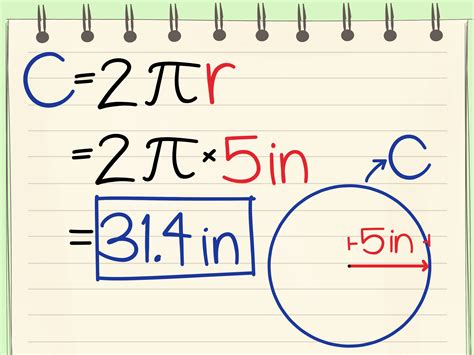 C=2πr
=2π×5in
C
=31.4in
5in